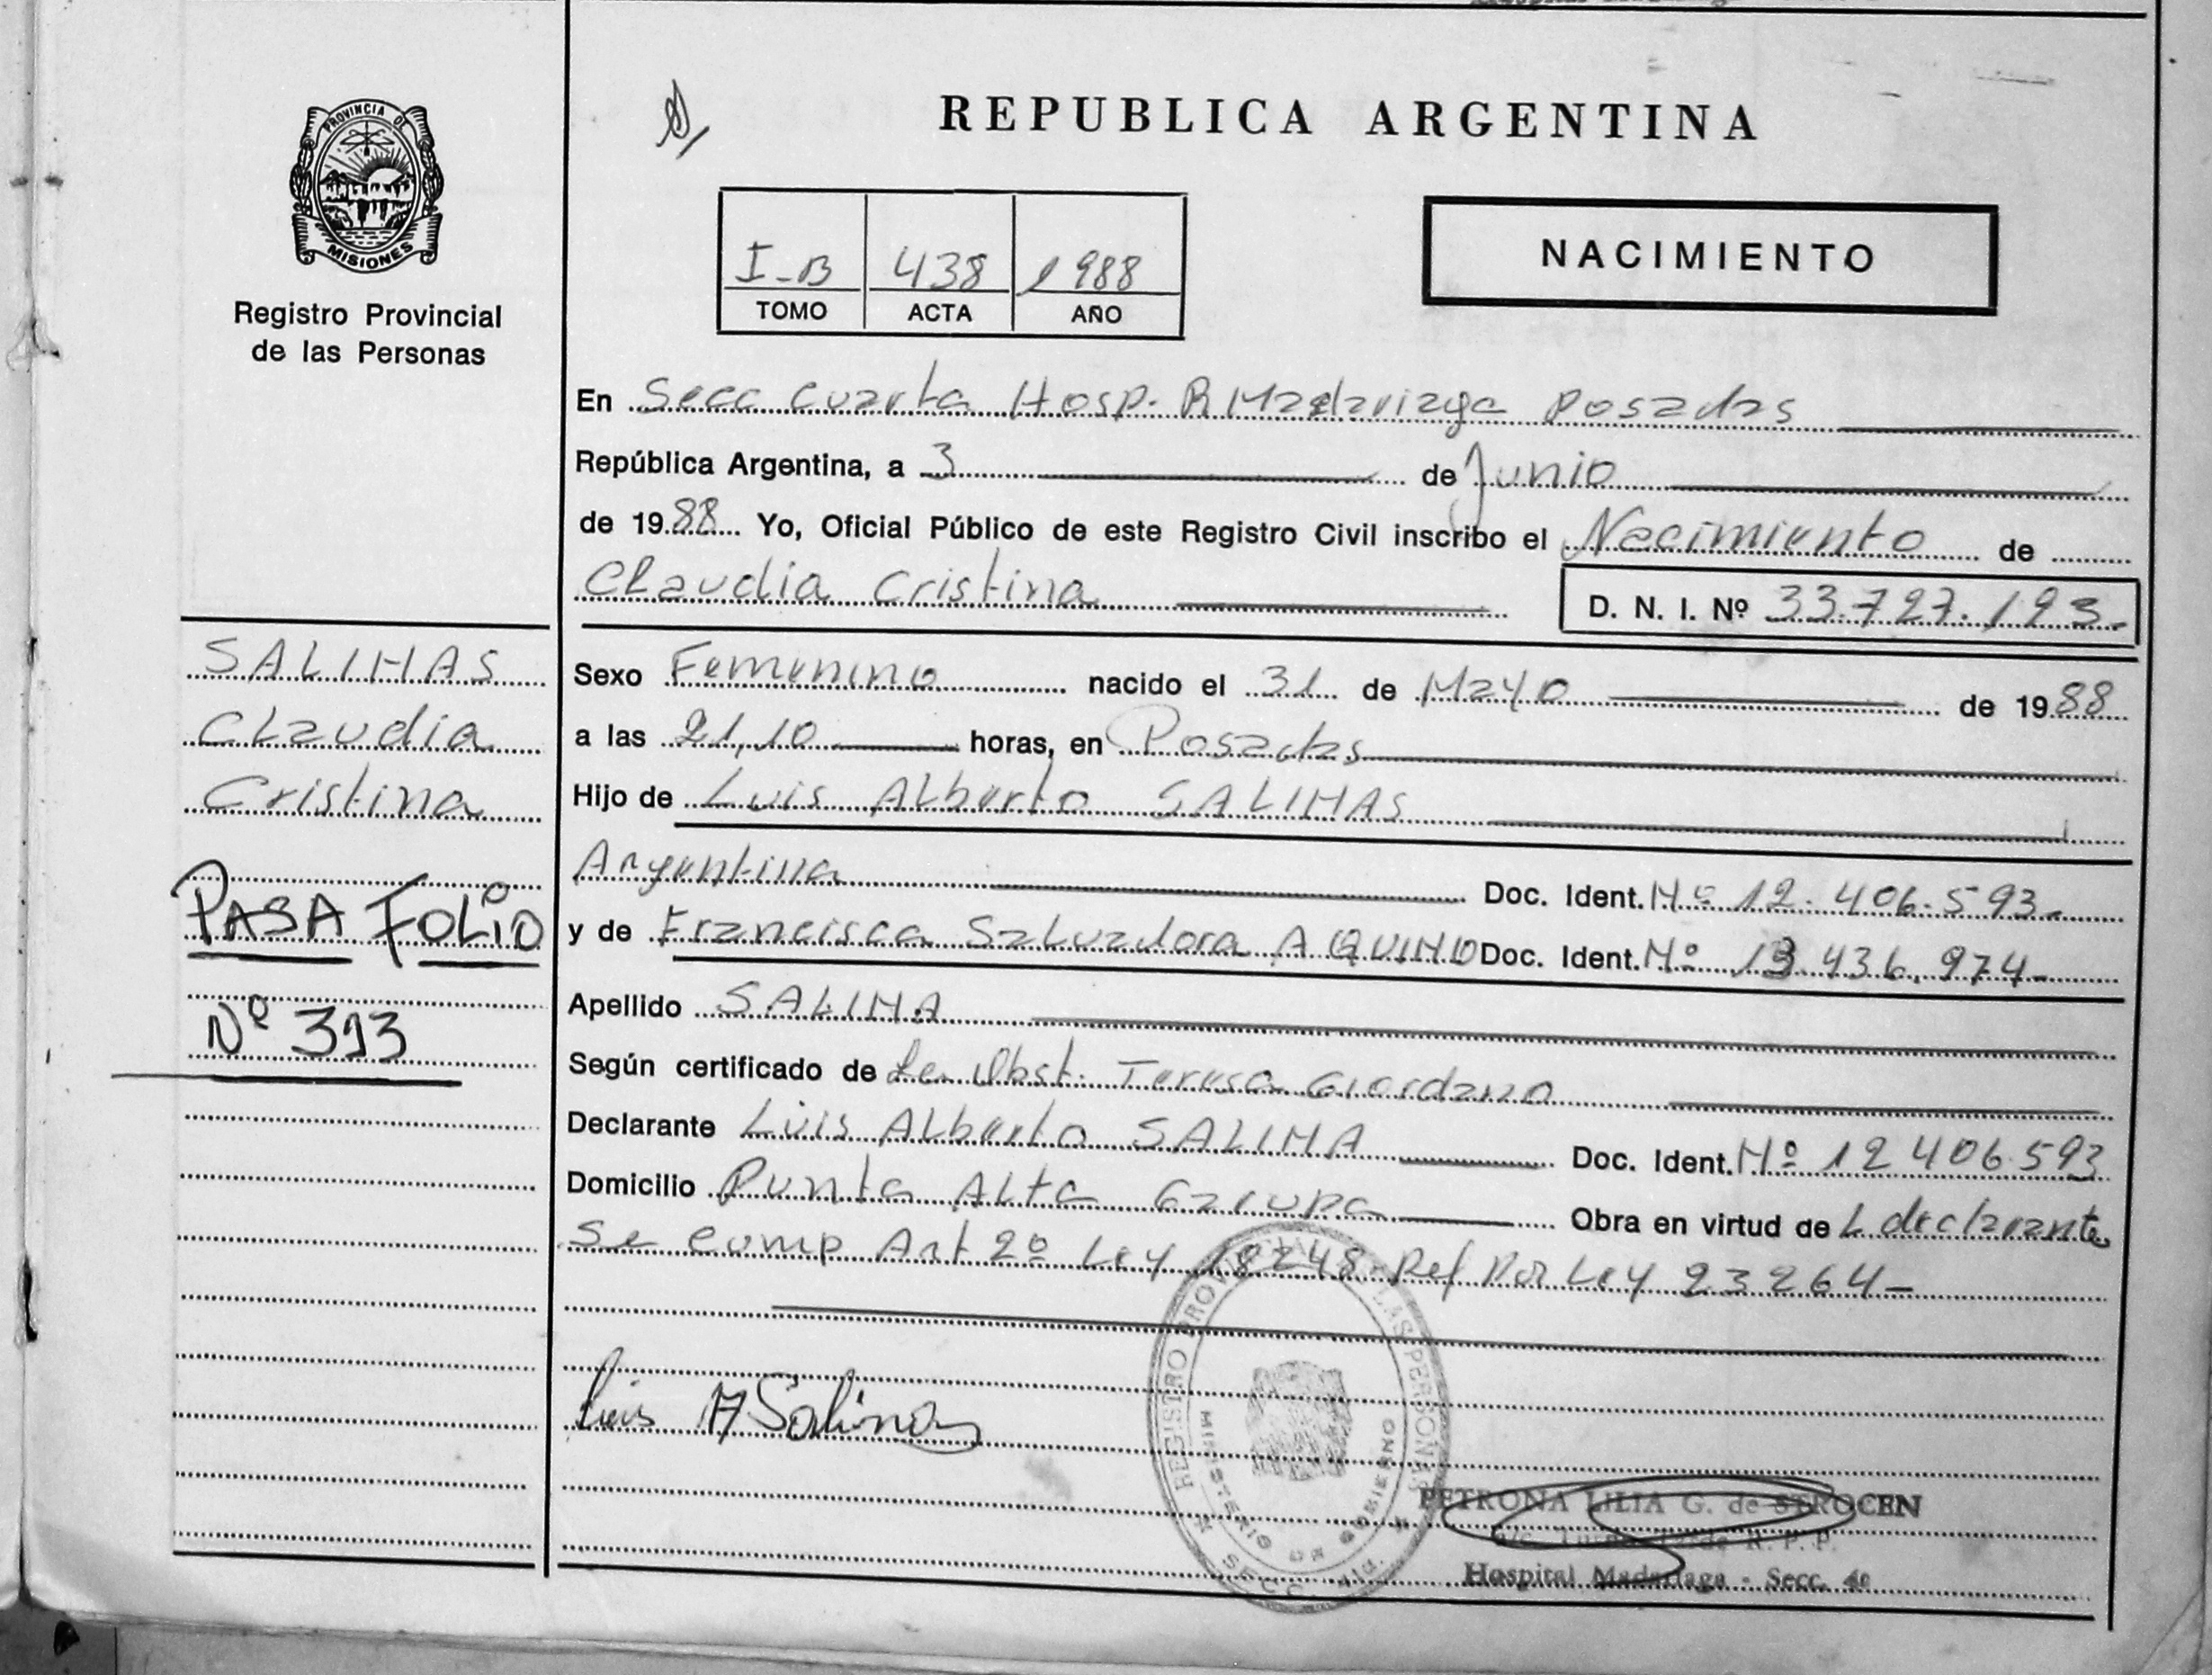 PROVINCIA DE
MISIONES
Registro Provincial
de las Personas
REPUBLICA ARGENTINA
I-B 438 1988
TOMO ACTA AÑO
NACIMIENTO
En Secc Cuarta Hosp. R Madariaga Posadas
República Argentina, a 3 de Junio
de 1988 Yo, Oficial Público de este Registro Civil inscribo el Nacimiento de
Claudia Cristina D. N. I. Nº 33.727.193.
SALINAS
Claudia
Cristina
PASA FOLIO
Nº 393
Sexo Femenino nacido el 31 de Mayo de 1988
a las 21,10 horas, en Posadas
Hijo de Luis Alberto SALINAS
Argentina Doc. Ident. Nº 12.406.593.
y de Francisca Salvadora AQUINO Doc. Ident. Nº 13.436.974-
Apellido SALINA
Según certificado de La Obst. Teresa Giordano
Declarante Luis Alberto SALINA Doc. Ident. Nº 12 406.593
Domicilio Punta Alta Garupa Obra en virtud de L declarante
Se comp Art 2º Ley 18248 Ref Por Ley 23264-
Luis A Salinas
REGISTRO PROVINCIAL DE LAS PERSONAS
MINISTERIO DE GOBIERNO
SECC. 4ta.
PETRONA LILIA G. de STROCEN
R. P. P.
Hospital Madariaga - Secc. 4a